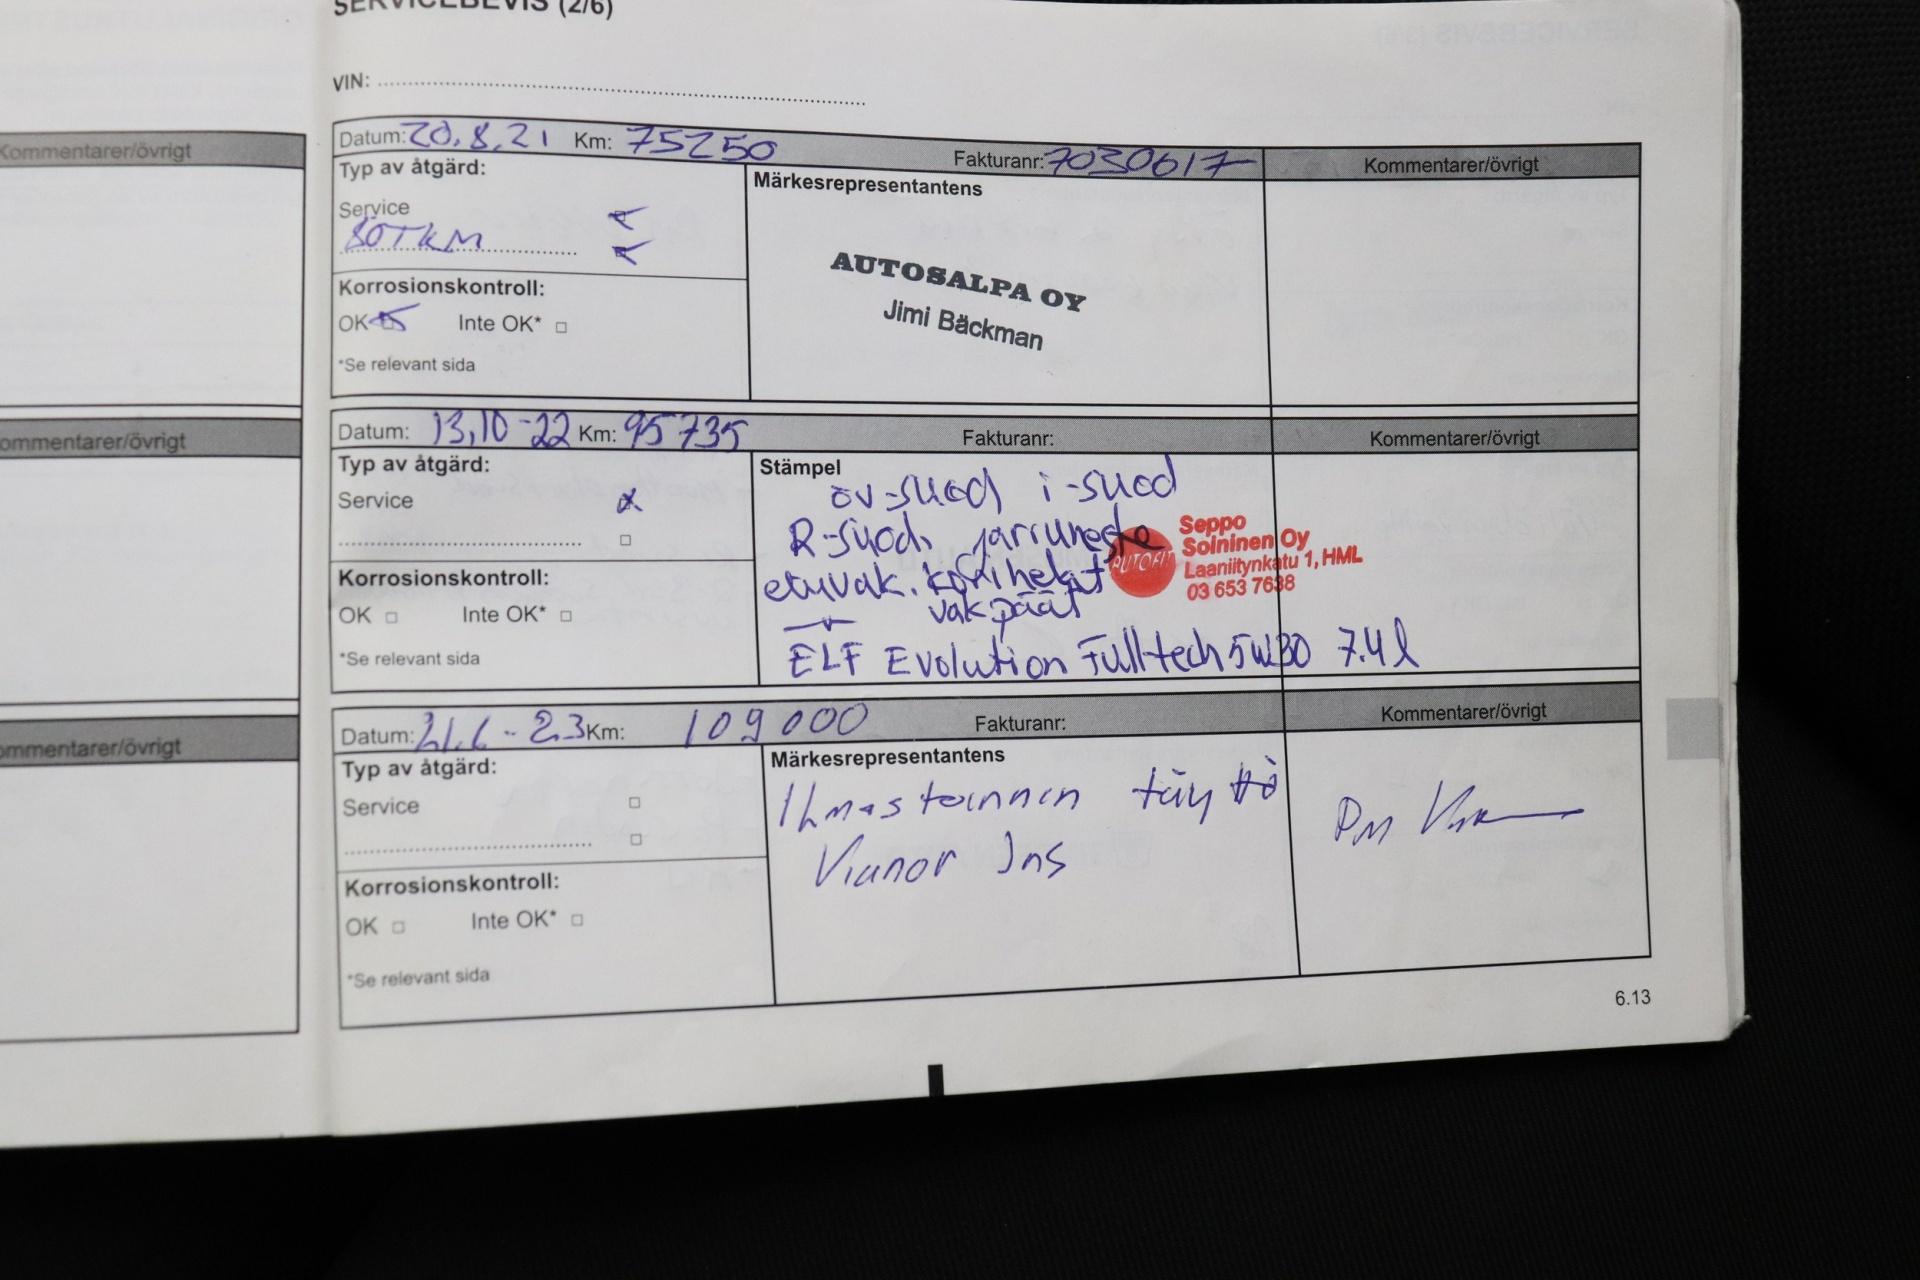 SERVICEBEVIS (2/6)
VIN:
Datum: 20.8.21 Km: 75250 Fakturanr: 7030617 Kommentarer/övrigt
Typ av åtgärd:
Märkesrepresentantens
Service
80TKM
AUTOSALPA OY
Jimi Bäckman
Korrosionskontroll:
OK Inte OK*
*Se relevant sida
Datum: 13,10-22 Km: 95735 Fakturanr: Kommentarer/övrigt
Typ av åtgärd:
Stämpel
Service
öv-suod i-suod
R-suod, jarruneste
etuvak. kodinhelat
vakpäät
Seppo
Soininen Oy
Laaniitynkatu 1, HML
03 653 7638
AUTOFIT
ELF Evolution Fulltech 5W30 7.4 l
Korrosionskontroll:
OK Inte OK*
*Se relevant sida
Datum: 21.6-23 Km: 109000 Fakturanr: Kommentarer/övrigt
Typ av åtgärd:
Märkesrepresentantens
Service
Ilmastoinnin täyttö
Vianor Jns
Korrosionskontroll:
OK Inte OK*
*Se relevant sida
6.13
Kommentarer/övrigt
ommentarer/övrigt
ommentarer/övrigt